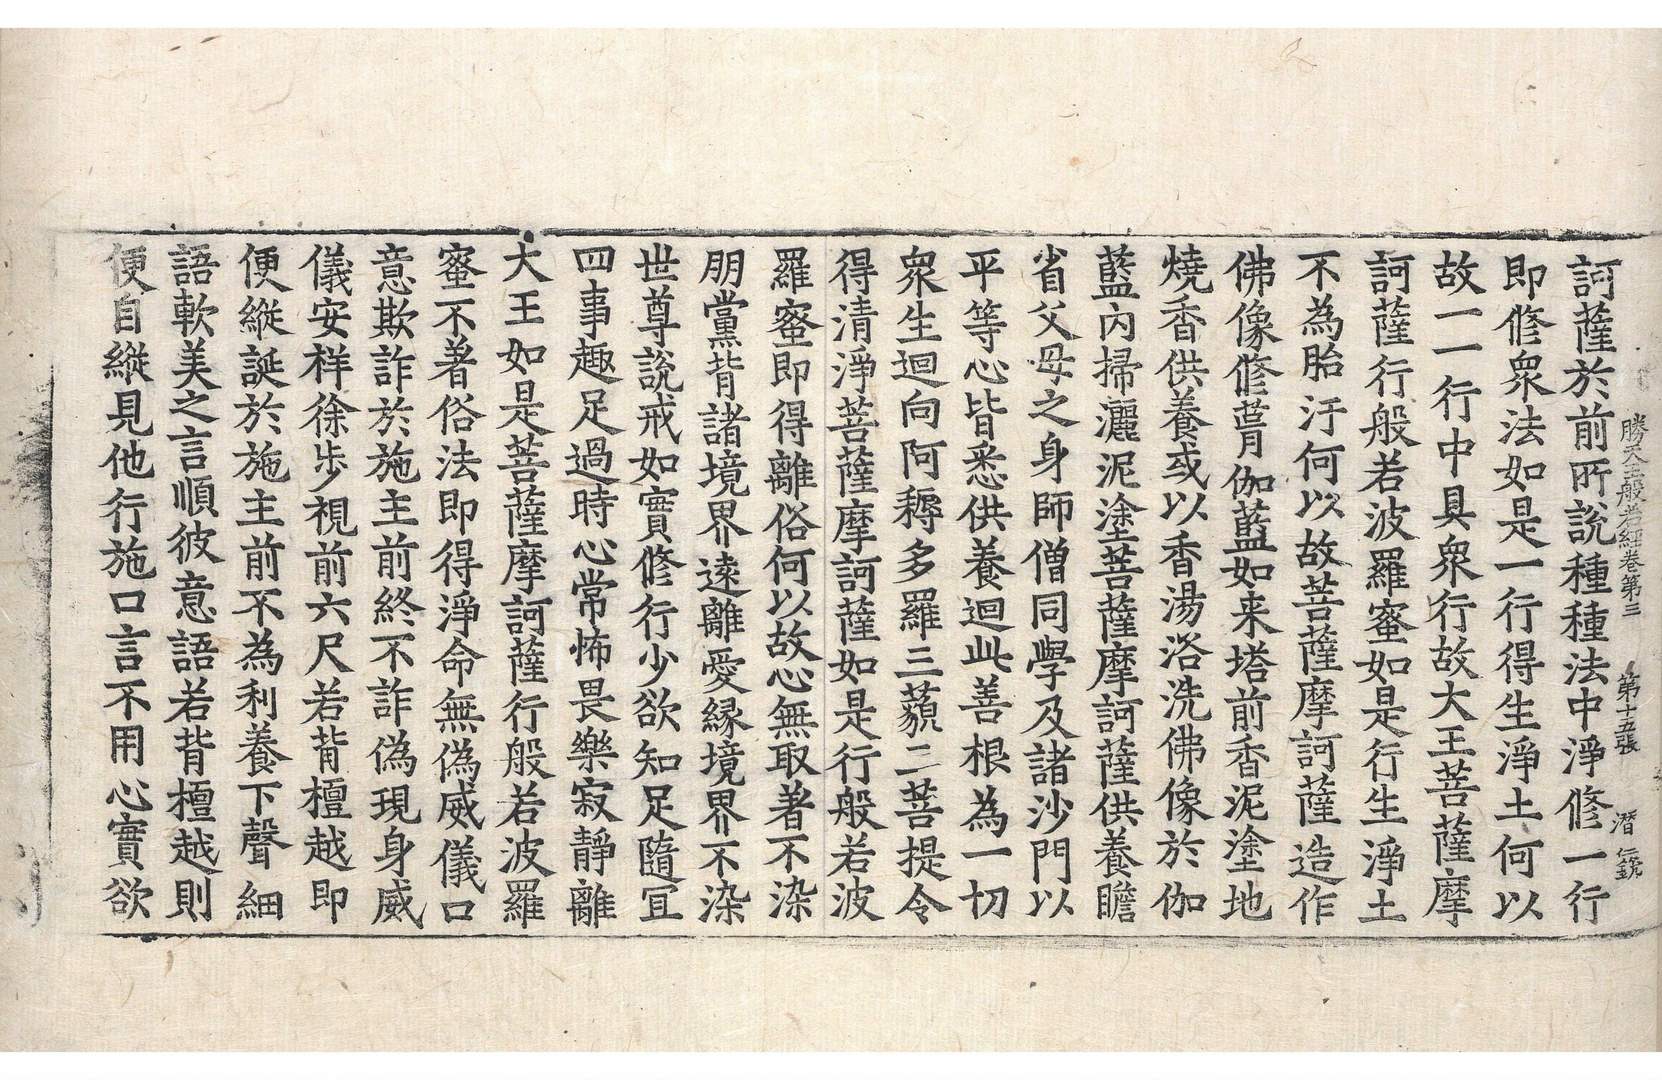 勝天王般若経卷第三 第十五張 潛 仁銳
訶薩於前所說種種法中淨修一行
即修衆法如是一行得生淨土何以
故一一行中具衆行故大王菩薩摩
訶薩行般若波羅蜜如是行生淨土
不為胎汙何以故菩薩摩訶薩造作
佛像修葺伽藍如来塔前香泥塗地
燒香供養或以香湯浴洗佛像於伽
藍内掃灑泥塗菩薩摩訶薩供養瞻
省父母之身師僧同學及諸沙門以
平等心皆悉供養迴此善根為一切
衆生迴向阿耨多羅三藐三菩提令
得清淨菩薩摩訶薩如是行般若波
羅蜜即得離俗何以故心無取著不染
朋黨背諸境界遠離愛縁境界不染
世尊說戒如實修行少欲知足隨冝
四事趣足過時心常怖畏樂寂靜離
大王如是菩薩摩訶薩行般若波羅
蜜不著俗法即得淨命無偽威儀口
意欺詐於施主前終不詐偽現身威
儀安祥徐步視前六尺若背檀越即
便縱誕於施主前不為利養下聲細
語軟美之言順彼意語若背檀越則
便自縱見他行施口言不用心實欲